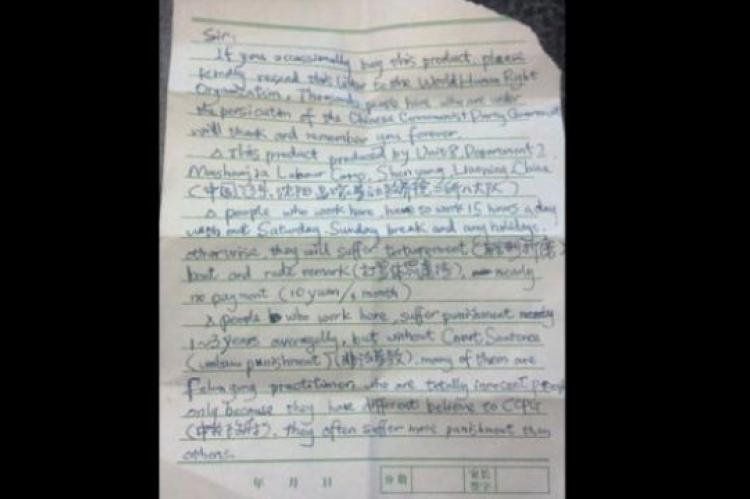 Sir:
If you occassionally buy this product, please
kindly resend this letter to the World Human Right
Organization. Thousands people here who are under
the persicution of the Chinese Communist Party Government
will thank and remember you forever.
△ This product produced by Unit 8, Department 2
Mashanjia Labour Camp, Shen yang, Liaoning, China
(中国 辽宁, 沈阳 马三家 劳动教养院 二所八大队)
△ people who work here, have to work 15 hours a day
with out Saturday, Sunday break and any holidays,
otherwise, they will suffer torturement
beat and rude remark (打骂体罚虐待), nearly
no payment (10 yuan/1 month)
△ people who work here, suffer punishment nearly
1~3 years averagelly, but without Court Sentence
(unlaw punishment) (非法劳教), many of them are
Falun gong practitioner, who are totally innocent people
only because they have different believe to CCPG
they often suffer more punishment than
others.
年 月 日
家长
签字